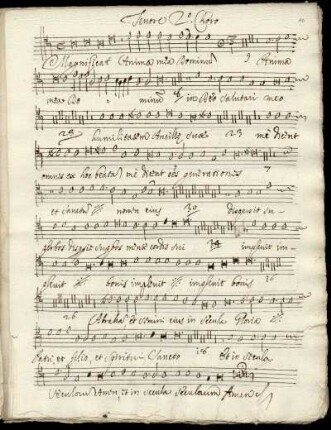 Tenore 2.º Choro
Magnificat Anima mea Dominum 9 Anima
mea Do minum in Deo salutari meo
20 humilitatem Ancillę suae 23 me dicent
omnes ex hoc beata me dicent oēs generationes 7
et sanctum nomen eius 30 dispersit su-
perbos dispersit superbos mente cordis sui 34 implevit im-
plevit bonis implevit implevit bonis 16
26 Abraham et semini eius in secula Gloria
Patri, et filio, et spiritui Sancto 18 Et in secula
seculorum Amen, et in secula seculorum Amen